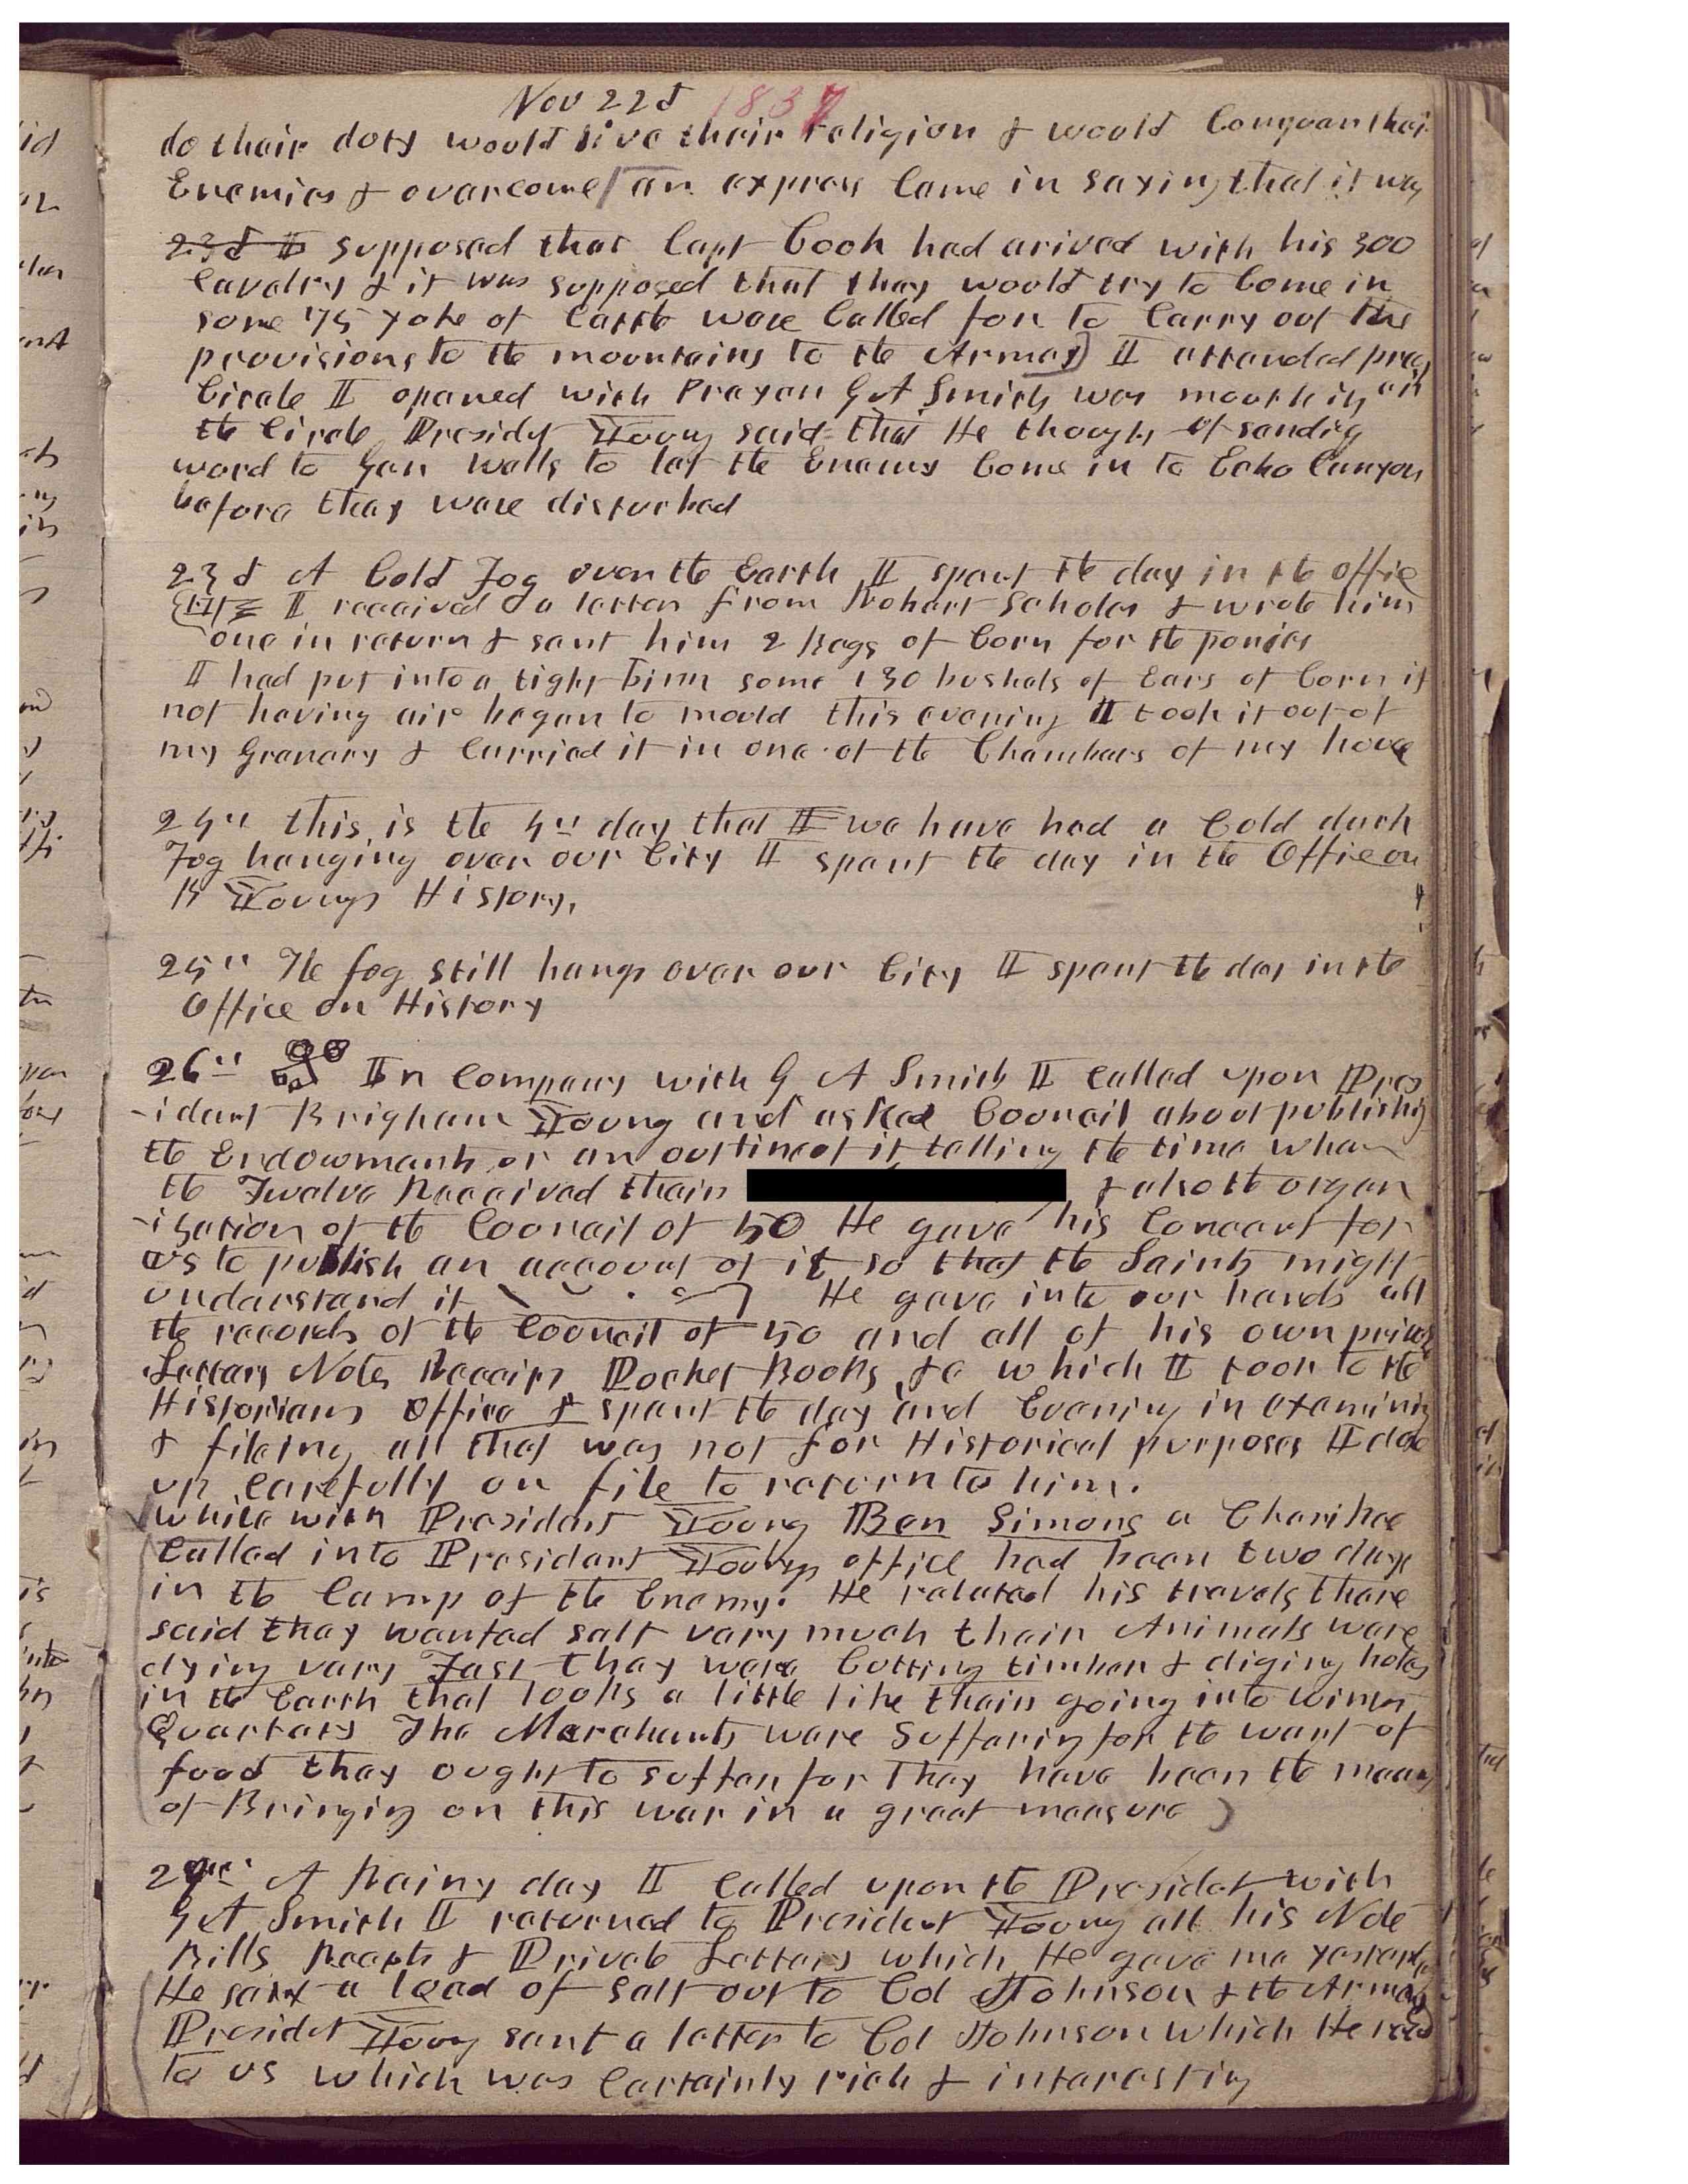 Nov 22d 1857
do thair duty would live their religion & would Conquer thair
Enemies & overcome an express Came in saying that it was
23d I supposed that Capt Cook had arived with his 300
Cavalry & it was supposed that thay would try to Come in
some 75 yoke of Cattle ware Called for to Carry out the
provisions to the mountains to the Armay I attended prayer
Circle I opened with Prayer G A Smith was mouth in
the Circle Presidt Young said that He thought of sendig
word to Gen Wells to let the Enemy Come in to Echo Canyon
before they ware disturbed
23d A Cold Fog over the Earth I spent the day in the office
I received a letter from Robart Scholes & wrote him
one in return & sent him 2 Bags of Corn for the ponies
I had put into a tight Binn some 130 bushels of Ears of Corn it
not having air began to mould this evening I took it out of
my Granary & Carried it in one of the Chambers of my house
24" this is the 4" day that I we have had a Cold dark
Fog hanging over our City I spent the day in the Office on
B Youngs History,
25" The fog still hangs over our City I spent the day in the
Office on History
26" In Company with G A Smith I called upon Pres
-ident Brigham Young and asked Council about publishig
the Endowments or an outline of it telling the time when
the Twelve Received their & also the organ
-ization of the Council of 50 He gave his Concent for
us to publish an account of it so that the Saints might
understand it He gave into our hands all
the records of the Council of 50 and all of his own private
Letters Notes Receips Pocket Books &c which I took to the
Historians office & spent the day and Evening in examining
& fileing all that was not for Historical purposes I done
up carefully on file to return to him.
while with President Young Ben Simons a Charikee
Called into President Youngs office had been two days
in the Camp of the Enemy. He related his travels there
said thay wanted salt very much their Animals ware
dying vary Fast thay ware Cutting timber & diging holes
in the Earth that looks a little like their going into winter
Quarters The Merchants ware Suffering for the want of
food thay ought to suffer for Thay have been the means
of Bringing on this war in a great measure
27th A Rainy day I called upon the Presidet with
G A Smith I returned to President Young all his Note
Bills Recepts & Private Letters which He gave me yesterday
He sent a load of salt out to Col Johnson & the Army
Presidet Young sent a letter to Col Johnson which He read
to us which was Certainly rich & interesting